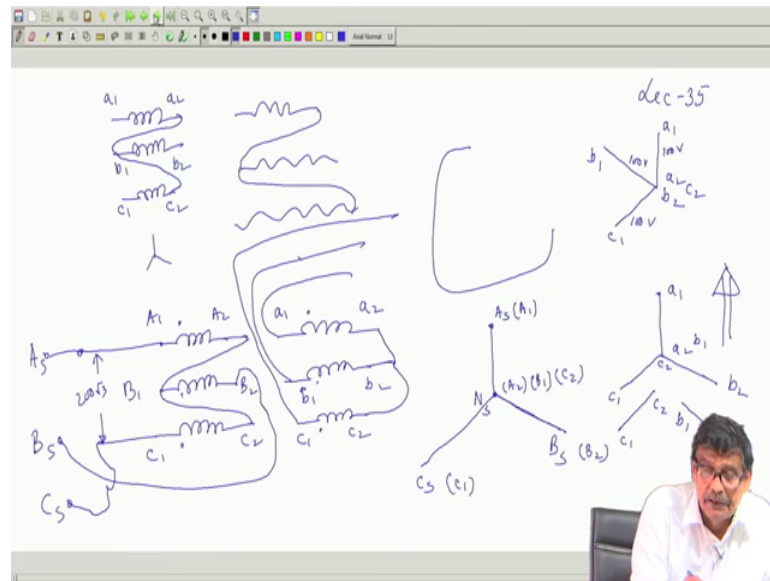 Arial Normal 12
Lec-35
a1 a2
b1 b2
c1 c2
a1
b1 100V 100V
a2
b2 c2
c1 100V
A1 A2
As
200√3
B1 B2
C1 C2
Bs
Cs
a1 a2
b1 b2
c1 c2
As (A1)
Ns (A2) (B1) (C2)
Bs (B2)
Cs (C1)
a1
a2 b1
c2
c1 b2
c2
c1 b1